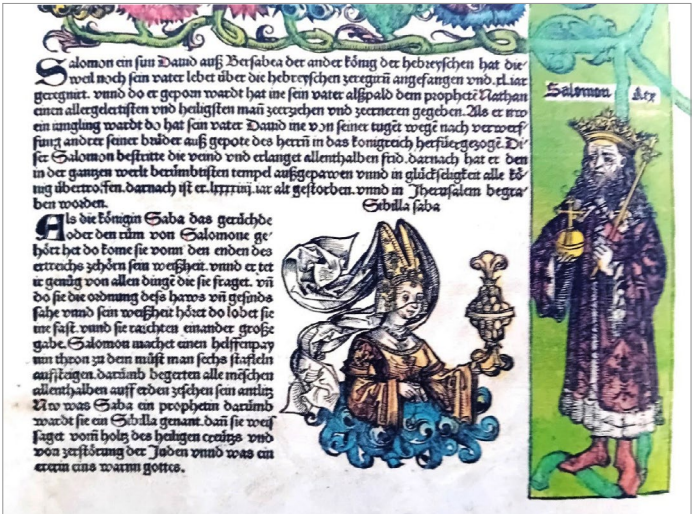 Salomon ein sun Dauid auß Bersabea der ander könig der hebreyschen hat die
weil noch sein vater lebet über die hebreyschen zeregirñ angefangen vnd. xl. iar
geregnirt. vnnd do er geporn wardt hat ine sein vater alßpald dem prophetē Nathan
einen allergelertisten vnd heiligsten mañ zeerziehen vnd zeerneren gegeben. Als er nw
ein iungling wardt do hat sein vater Dauid ine von seiner tugēt wegē nach verwerf
fung andrer seiner brüder auß gepote des herrñ in das konigreich herfuergezogē. Di
ser Salomon bestritte die veind vnd erlanget allenthalben frid. darnach hat er den
in der gantzen werlt berümbtisten tempel außgepawen vnd in glückseligkeit alle kö
nig übertroffen. darnach ist er. iar alt gestorben. vnnd in Jherusalem begra
ben worden.
Sibilla saba
Als die königin Saba das gerüchde
oder den rüm von Salomone ge
hört het do kome sie vonn den enden des
ertreichs zehörn sein weißheit. vnnd er tet
ir genüg von allen dingē die sie fraget. vñ
do sie die ordnung deß haws vñ gesinds
sahe vnnd sein weißheit höret do lobet sie
ine fast. vnnd sie raichten einander große
gabe. Salomon machet einen helffenpay
nin thron zu dem müst man sechs staffeln
auffsteigen. darumb begerten alle mēschen
allenthalben auff erden zesehen sein antlitz
Nw was Saba ein prophetin darumb
wardt sie ein Sibilla genant. dañ sie weis
saget vom holtz des heiligen creützs vnd
von zerstörung der Juden vnnd was ein
ererin eins warnn gottes.
Salomon Rex